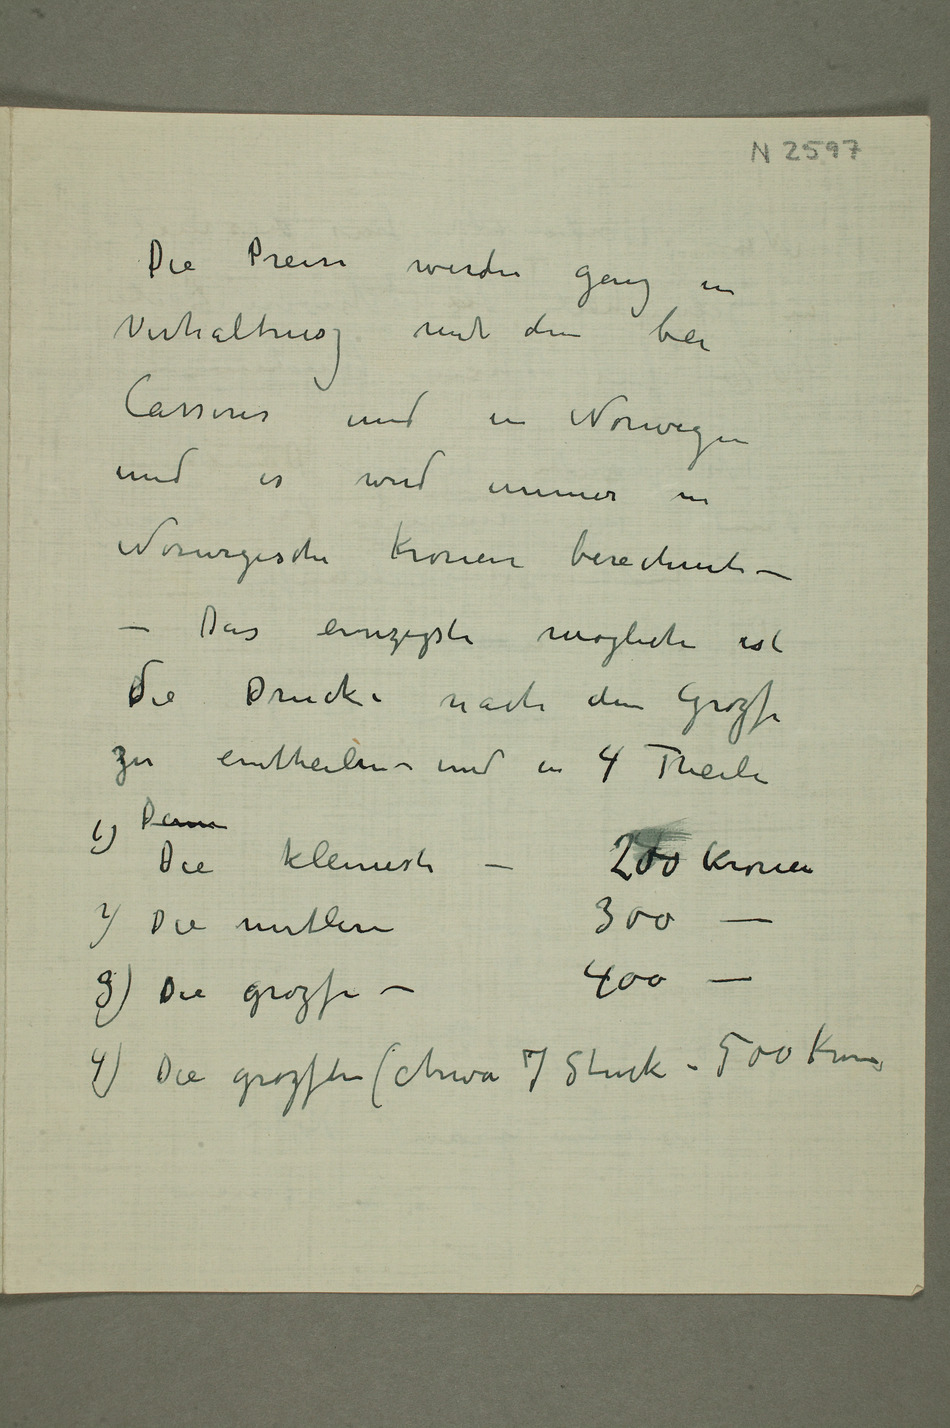 N 2597
Die Preise werden ganz in
Verhältnisz mit dem bei
Cassirer und in Norwegen
und es wird immer in
Norwegische Kronen berechnet –
– Das einzigste mögliche ist
die Drucke nach dem Grözse
zu eintheilen – und in 4 Theile
1) Dann
Die kleineste – 200 Kronen
2) Die mitlere 300 —
3) Die grozse – 400 —
4) Die grozsten (etwa 7 Stuck - 500 Kronen